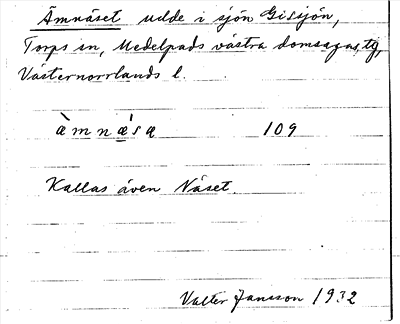 Ämnäset udde i sjön Gissjön,
Torps sn, Medelpads västra domsagas tg,
Västernorrlands l.
àmnæ̀sa 109
Kallas även Näset.
Valter Jansson 1932